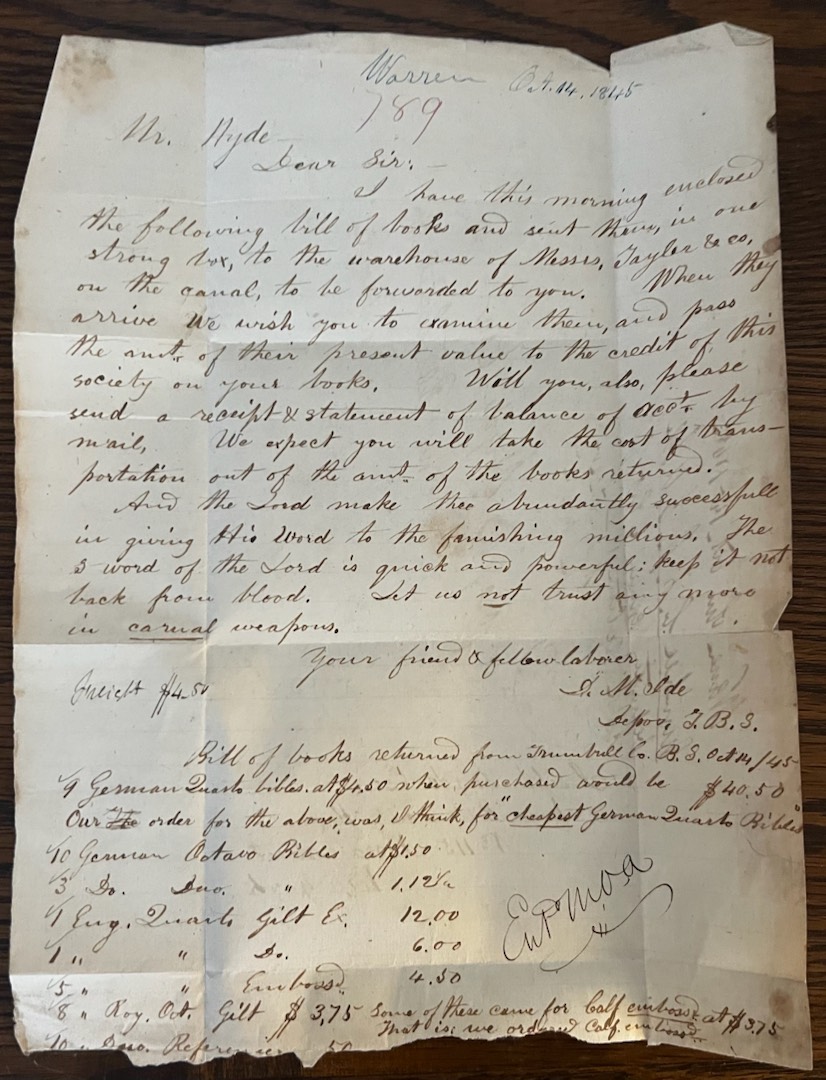 Warren Oct. 14, 1845
789
Mr. Hyde
Dear Sir:-
I have this morning enclosed
the following bill of books and sent them, in one
strong box, to the warehouse of Messrs, Tayler & co,
on the canal, to be forwarded to you. When they
arrive we wish you to examine them, and pass
the amt. of their present value to the credit of this
society on your books. Will you, also, please
send a receipt & statement of balance of acct. by
mail, We expect you will take the cost of trans-
portation out of the amt. of the books returned.
And the Lord make thee abundantly successfull
in giving His Word to the famishing millions. The
word of the Lord is quick and powerful: keep it not
back from blood. Let us not trust any more
in carnal weapons.
Your friend & fellow laborer
D. M. Ide
Depos. T. B. S.
Freight $4.50
Bill of books returned from Trumbull Co. B. S. Oct 14/45
9 German Quarto bibles. at $4.50 when purchased would be $40.50
Our order for the above, was, I think, for "cheapest German Quarto Bibles"
10 German Octavo Bibles at $1.50
3 Do. Duo. " 1.12½
1 Eng. Quarto Gilt Ex. 12.00
1 " " Do. 6.00
5 " " Emboss'd. 4.50
8 " Roy. Oct. Gilt $3,75 Some of these came for Calf emboss'd. at $3.75
That is; we ordered Calf emboss'd.
10 " Duo. 50